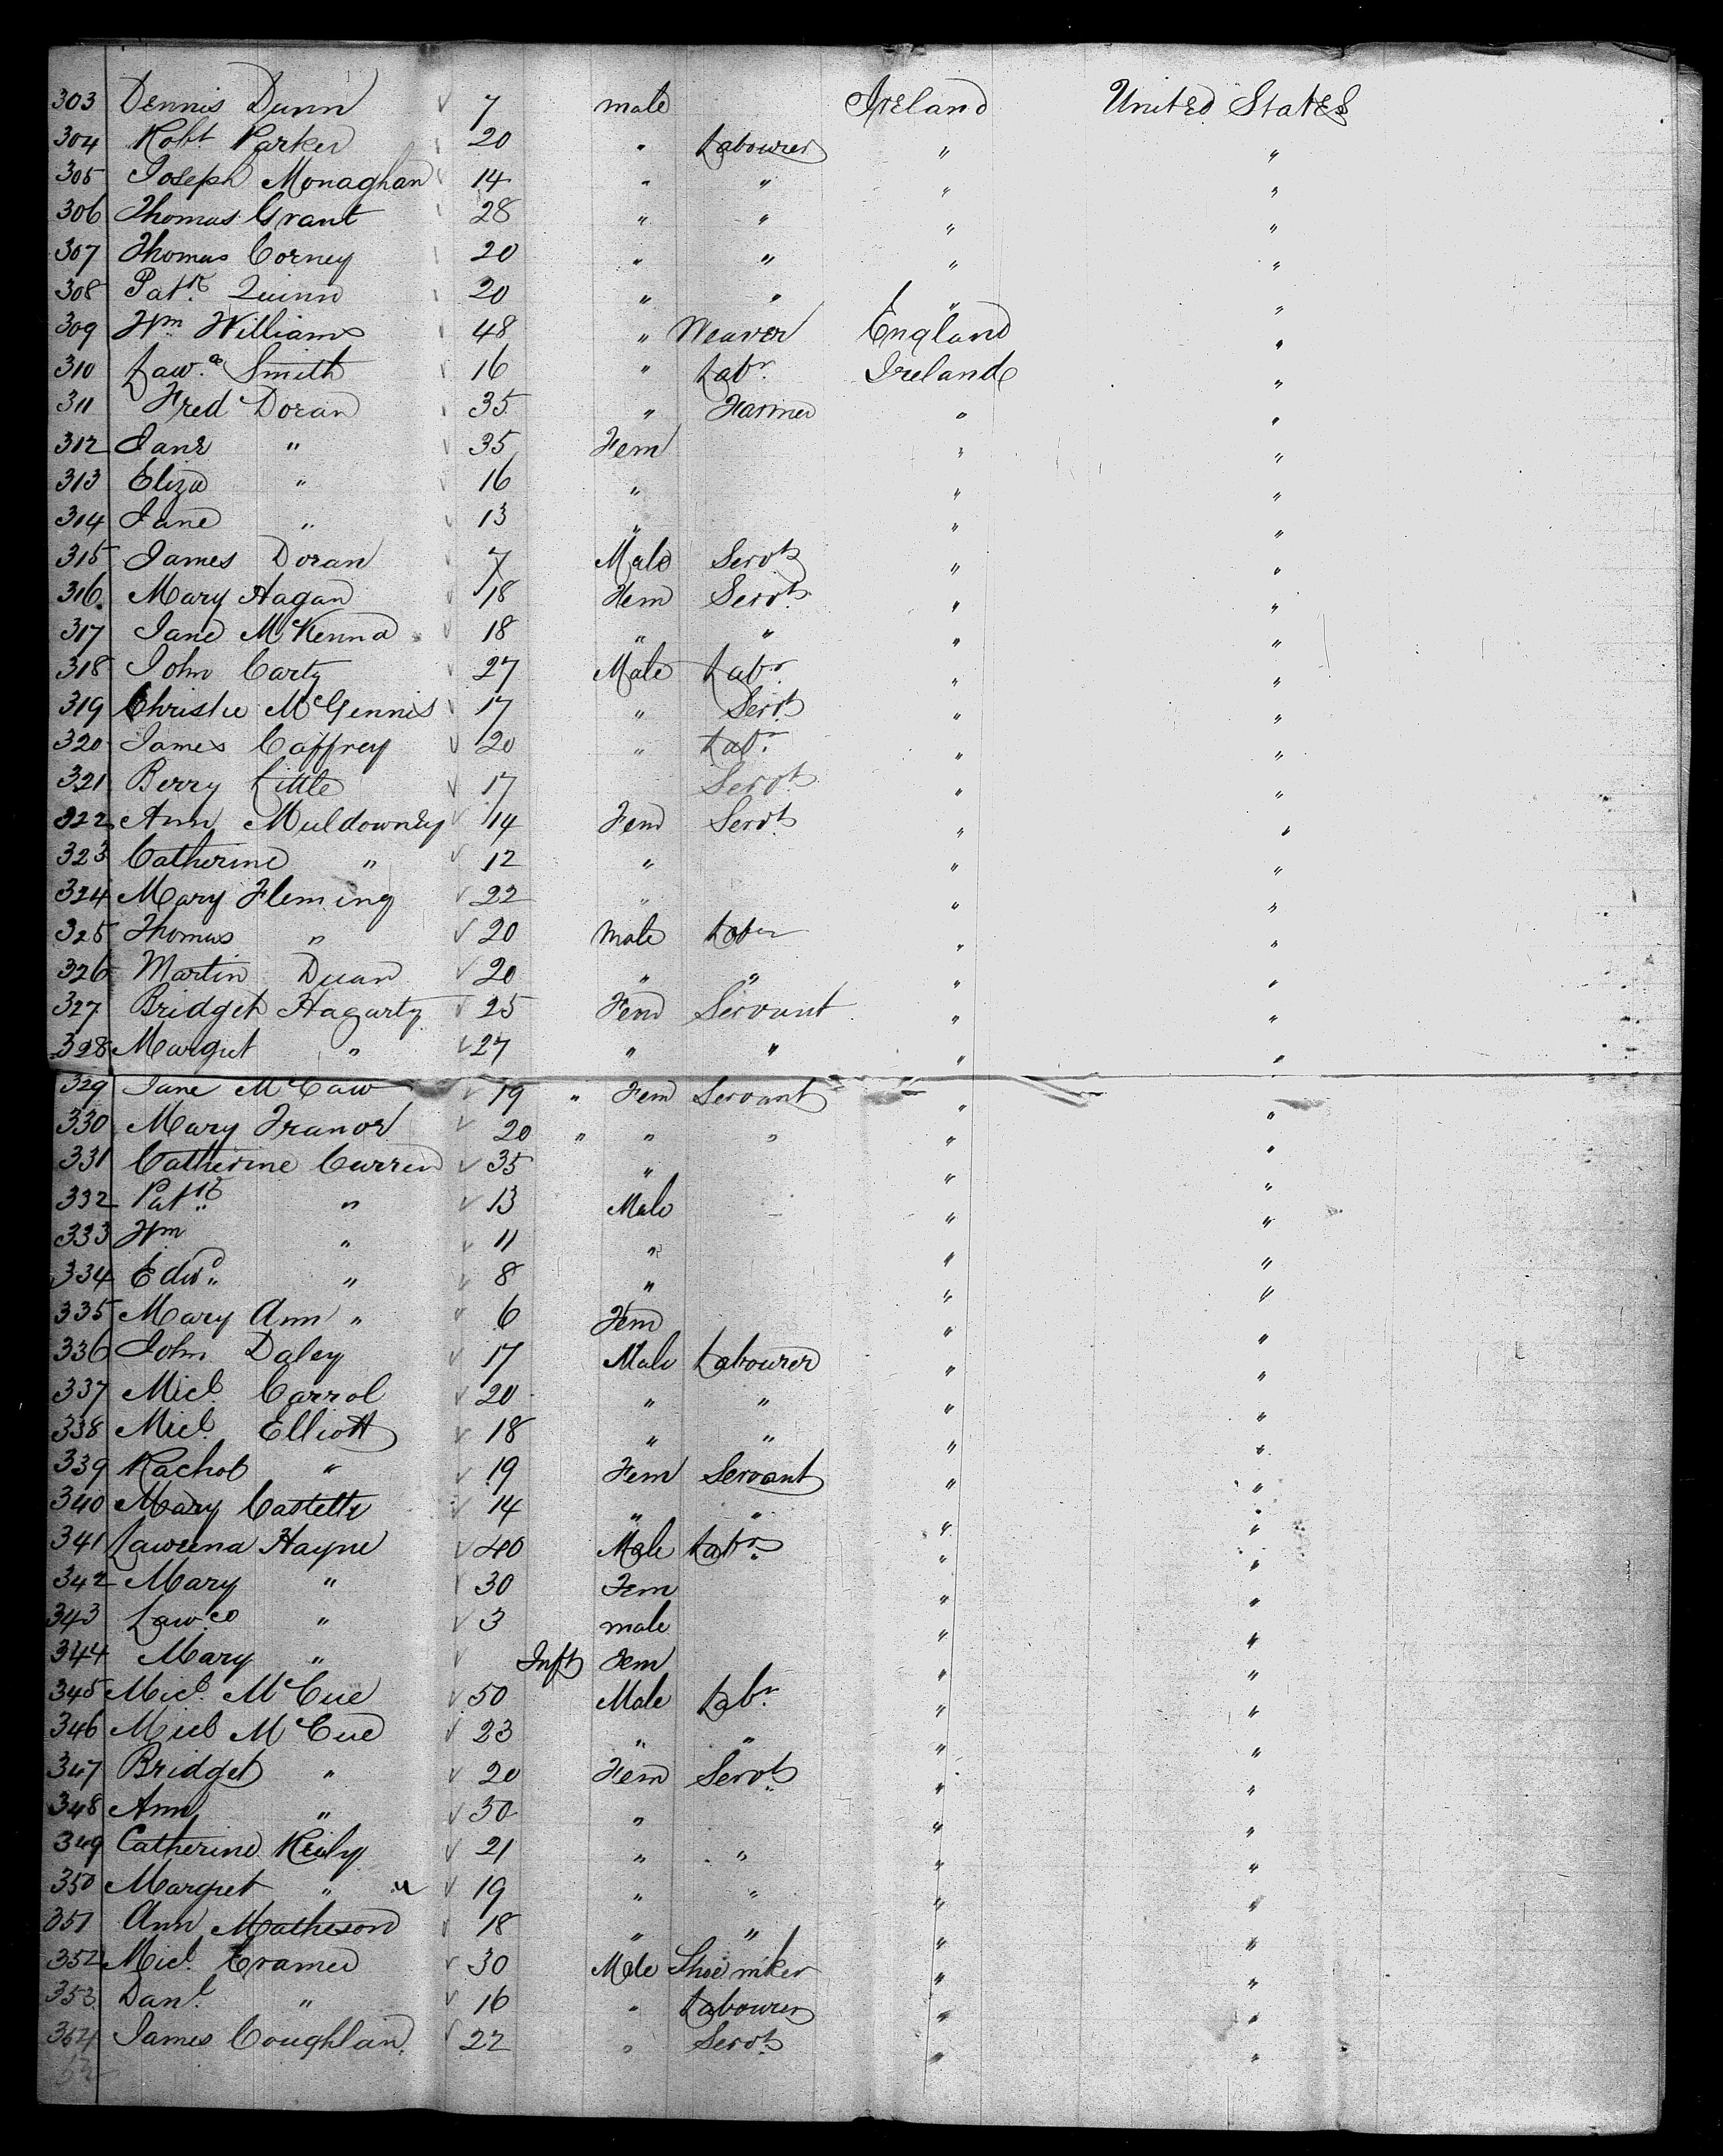 303 Dennis Dunn 7 male Ireland United States
304 Robt. Parker 20 " Labourer " "
305 Joseph Monaghan 14 " " " "
306 Thomas Grant 28 " " " "
307 Thomas Corney 20 " " " "
308 Patk. Quinn 20 " " " "
309 Wm Williams 48 " Weaver England "
310 Law.ce Smith 16 " Labr. Ireland "
311 Fred Doran 35 " Farmer " "
312 Jane " 35 Fem " "
313 Eliza " 16 " " "
314 Jane " 13 " " "
315 James Doran 7 Male Servt " "
316 Mary Hagan 18 Fem Servt. " "
317 Jane McKenna 18 " " " "
318 John Carty 27 Male Labr. " "
319 Christie McGennis 17 " Servt " "
320 James Caffrey 20 " Labr. " "
321 Berry Little 17 Servt. " "
322 Ann Muldowney 14 Fem Servt. " "
323 Catherine " 12 " " "
324 Mary Fleming 22 " " "
325 Thomas " 20 male Labr " "
326 Martin Duan 20 " " " "
327 Bridget Hagarty 25 Fem Servant " "
328 Margret " 27 " " " "
329 Jane McCaw 19 " Fem Servant " "
330 Mary Tranor 20 " " " " "
331 Catherine Curren 35 " " "
332 Patk. " 13 Male " "
333 Wm " 11 " " "
334 Edwd. " 8 " " "
335 Mary Ann " 6 Fem " "
336 John Daley 17 Male Labourer " "
337 Micl. Carrol 20 " " " "
338 Micl. Elliott 18 " " " "
339 Rachel " 19 Fem Servant " "
340 Mary 14 " " " "
341 Hayne 40 Male Labr. " "
342 Mary " 30 Fem " "
343 Lawce " 3 male " "
344 Mary " Inft Fem " "
345 Micl. McCue 50 Male Labr. " "
346 Micl McCue 23 " " " "
347 Bridget " 20 Fem Servt. " "
348 Ann " 30 " " "
349 Catherine Reily 21 " " " "
350 Margret " 19 " " " "
351 Ann Matheson 18 " " " "
352 Micl. Cramer 30 Male Shoe mker " "
353 Danl. " 16 " Labourer " "
354 James Coughlan 22 " Servt. " "